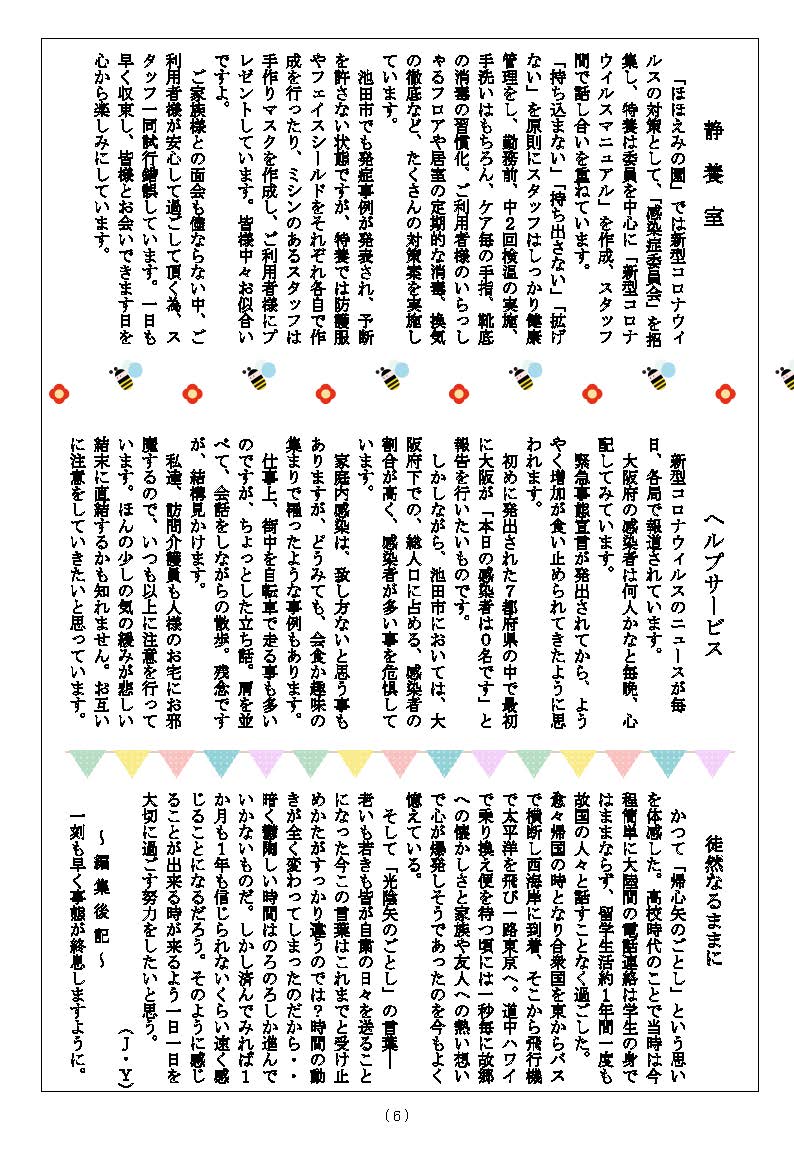 静養室
「ほほえみの園」では新型コロナウィ
ルスの対策として、「感染症委員会」を招
集し、特養は委員を中心に「新型コロナ
ウィルスマニュアル」を作成、スタッフ
間で話し合いを重ねています。
「持ち込まない」「持ち出さない」「拡げ
ない」を原則にスタッフはしっかり健康
管理をし、勤務前、中２回検温の実施、
手洗いはもちろん、ケア毎の手指、靴底
の消毒の習慣化、ご利用者様のいらっし
ゃるフロアや居室の定期的な消毒、換気
の徹底など、たくさんの対策案を実施し
ています。
池田市でも発症事例が発表され、予断
を許さない状態ですが、特養では防護服
やフェイスシールドをそれぞれ各自で作
成を行ったり、ミシンのあるスタッフは
手作りマスクを作成し、ご利用者様にプ
レゼントしています。皆様中々お似合い
ですよ。
ご家族様との面会も儘ならない中、ご
利用者様が安心して過ごして頂く為、ス
タッフ一同試行錯誤しています。一日も
早く収束し、皆様とお会いできます日を
心から楽しみにしています。
ヘルプサービス
新型コロナウィルスのニュースが毎
日、各局で報道されています。
大阪府の感染者は何人かなと毎晩、心
配してみています。
緊急事態宣言が発出されてから、よう
やく増加が食い止められてきたように思
われます。
初めに発出された７都府県の中で最初
に大阪が「本日の感染者は０名です」と
報告を行いたいものです。
しかしながら、池田市においては、大
阪府下での、総人口に占める、感染者の
割合が高く、感染者が多い事を危惧して
います。
家庭内感染は、致し方ないと思う事も
ありますが、どうみても、会食か趣味の
集まりで罹ったような事例もあります。
仕事上、街中を自転車で走る事も多い
のですが、ちょっとした立ち話。肩を並
べて、会話をしながらの散歩。残念です
が、結構見かけます。
私達、訪問介護員も人様のお宅にお邪
魔するので、いつも以上に注意を行って
います。ほんの少しの気の緩みが悲しい
結末に直結するかも知れません。お互い
に注意をしていきたいと思っています。
徒然なるままに
かつて「帰心矢のごとし」という思い
を体感した。高校時代のことで当時は今
程簡単に大陸間の電話連絡は学生の身で
はままならず、留学生活約１年間一度も
故国の人々と話すことなく過ごした。
愈々帰国の時となり合衆国を東からバス
で横断し西海岸に到着、そこから飛行機
で太平洋を飛び一路東京へ。道中ハワイ
で乗り換え便を待つ頃には一秒毎に故郷
への懐かしさと家族や友人への熱い想い
で心が爆発しそうであったのを今もよく
憶えている。
そして「光陰矢のごとし」の言葉―
老いも若きも皆が自粛の日々を送ること
になった今この言葉はこれまでと受け止
めかたがすっかり違うのでは？時間の動
きが全く変わってしまったのだから・・
暗く鬱陶しい時間はのろのろしか進んで
いかないものだ。しかし済んでみれば１
か月も１年も信じられないくらい速く感
じることになるだろう。そのように感じ
ることが出来る時が来るよう一日一日を
大切に過ごす努力をしたいと思う。
（Ｊ・Ｙ）
～編集後記～
一刻も早く事態が終息しますように。
（6）